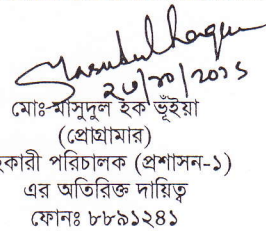 Masudul Haque
মোঃ মাসুদুল হক ভূঁইয়া
(প্রোগ্রামার)
কারী পরিচালক (প্রশাসন-১)
এর অতিরিক্ত দায়িত্ব
ফোনঃ ৮৮৯১২৪১